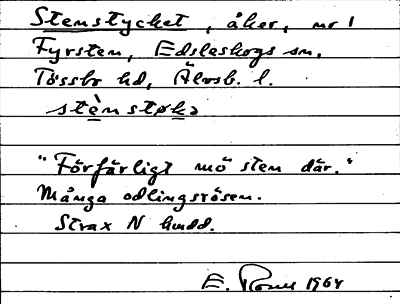 Stenstycket, åker, nr 1
Fyrsten, Edsleskogs sn.
Tössbo hd, Älvsb. l.
stènstykə
"Förfärligt mö sten där."
Många odlingsrösen.
Strax N
E. 1964